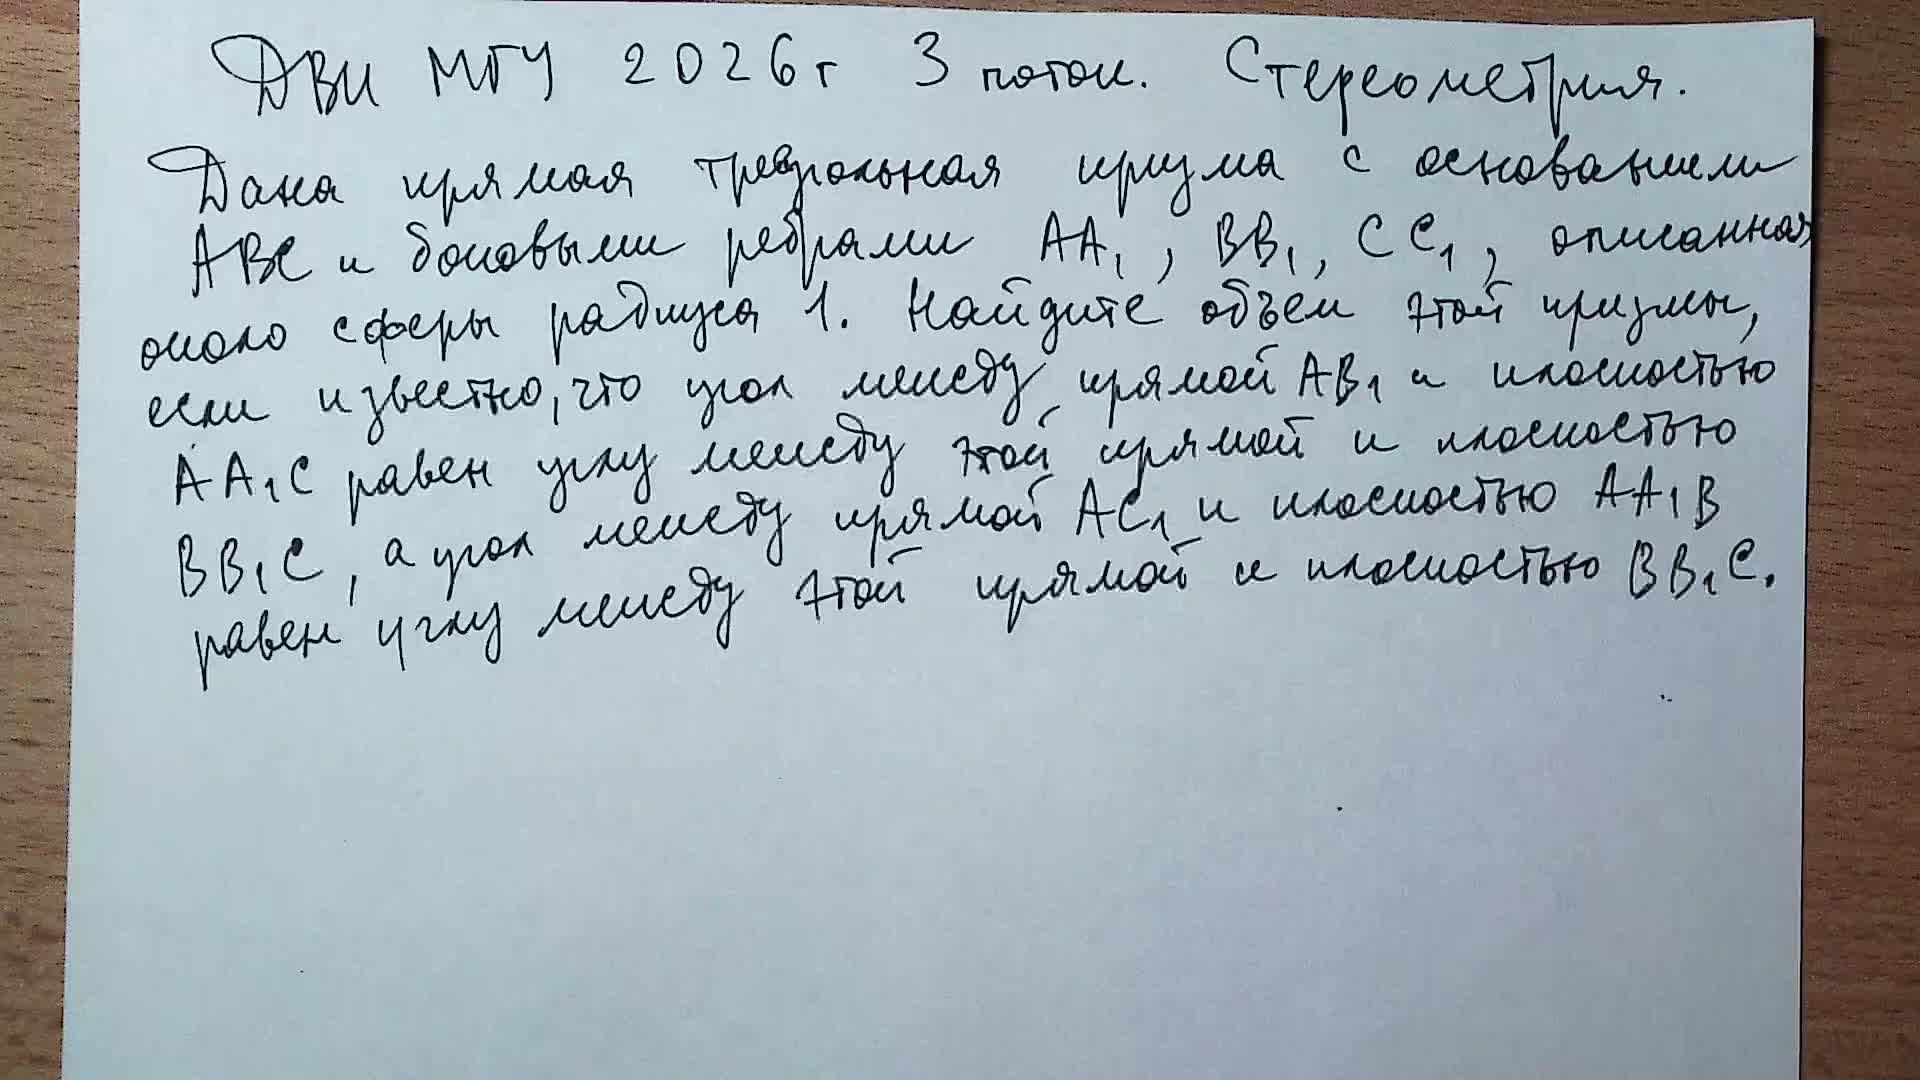 ДВИ МГУ 2026г 3 поток. Стереометрия.
Дана прямая треугольная призма с основанием
ABC и боковыми ребрами AA₁, BB₁, CC₁, описанная
около сферы радиуса 1. Найдите объем этой призмы,
если известно, что угол между прямой AB₁ и плоскостью
AA₁C равен углу между этой прямой и плоскостью
BB₁C, а угол между прямой AC₁ и плоскостью AA₁B
равен углу между этой прямой и плоскостью BB₁C.